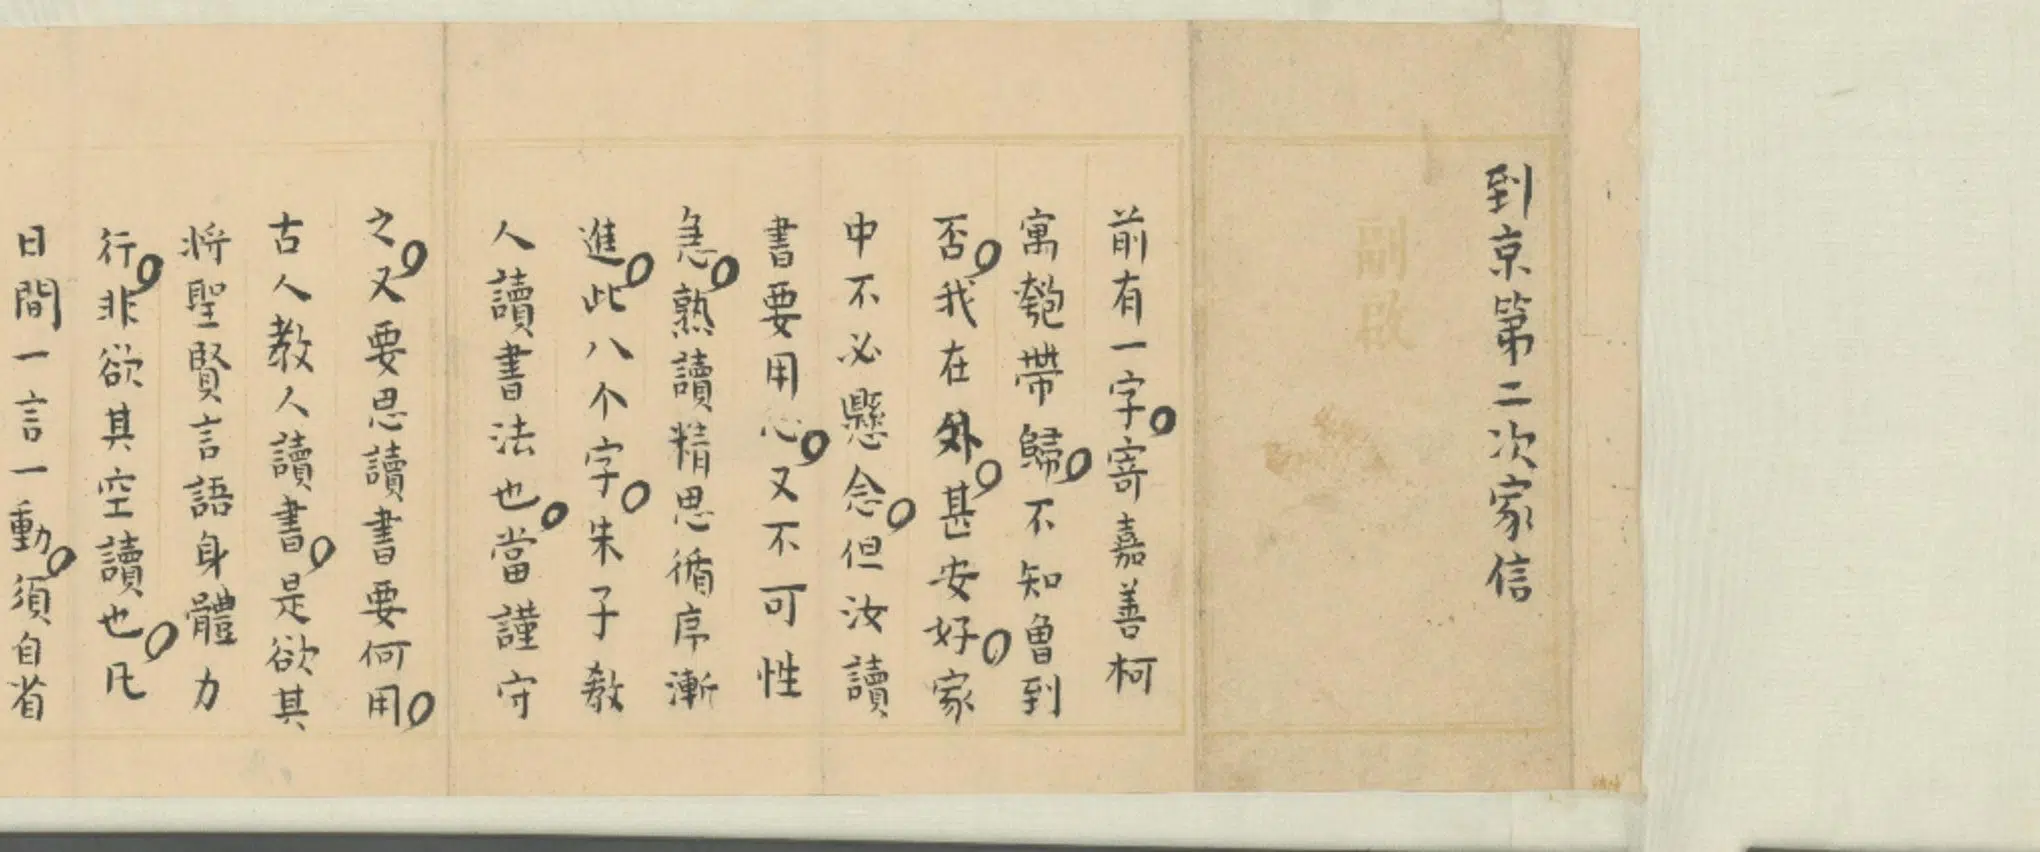 到京第二次家信
副啟
前有一字寄嘉善柯
寓匏帶歸不知曾到
否我在外甚安好家
中不必懸念但汝讀
書要用心又不可性
急熟讀精思循序漸
進此八个字朱子教
人讀書法也當謹守
之又要思讀書要何用
古人教人讀書是欲其
將聖賢言語身體力
行非欲其空讀也凡
日間一言一動須自省